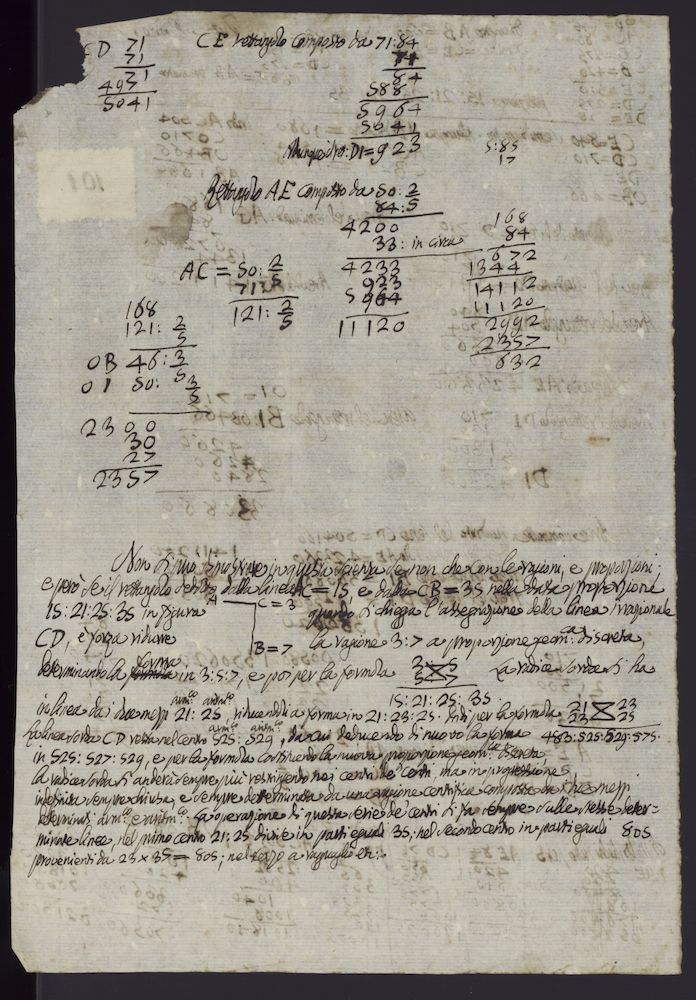 CD 71
71
71
497
5041
CE rettangolo composto da 71:84
71
84
588
5964
5041
DI=923
5:85
17
Rettangolo AE composto da 50: 2/5
84:5
4200
33: in circa
4233
923
5964
11120
168
84
672
1344
14112
11120
2992
2357
632
AC = 50: 2/5
71:
121: 2/5
168
121: 2/5
OB 46: 3/5
OI 50: 3/5
2300
30
27
2357
Non si può in questa scienza se non che con le ragioni, e proporzioni;
e però se il rettangolo è dalla linea AC = 15, e dalla CB = 35 nella proporzione
15:21:25:35 in figura A C = 3 quando si l'assegnazione della linea
CD, è forza ridurre B = 7 la ragione 3:7 a proporzione geom.ca discreta,
determinando la forma in 3:5:7, e poi per la formola 3 5 La radice sorda si ha
5 7
15:21:25:35.
in linea da i due mezzi arm.co 21: aritm.co 25, riducendoli a forma in 21:23:25. Indi per la formola 21 23
23 25
la linea sorda CD resta nel centro arm.co 525: aritm.co 529, da cui deducendo di nuovo la forma 483:525:529:575.
in 525:527:529, e per la formola costituendo la nuova proporzione geom.ca discreta,
la radice sorda si anderà sempre più restringendo nei centri de' centri, ma in progressione
indefinita sempre chiusa, e sempre determinata da una ragione composta da due mezzi
determinati arm.co e aritm.co La operazione di questa serie de' centri si fa sempre sulle stesse deter-
minate linee, nel primo centro 21:25 divise in parti eguali 35; nel secondo centro in parti eguali 805
provenienti da 23 x 35 = 805; nel terzo a ragguaglio etc.